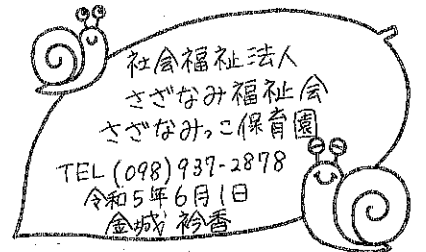 社会福祉法人
さざなみ福祉会
さざなみっこ保育園
TEL(098)937-2878
令和5年6月1日
金城 衿香